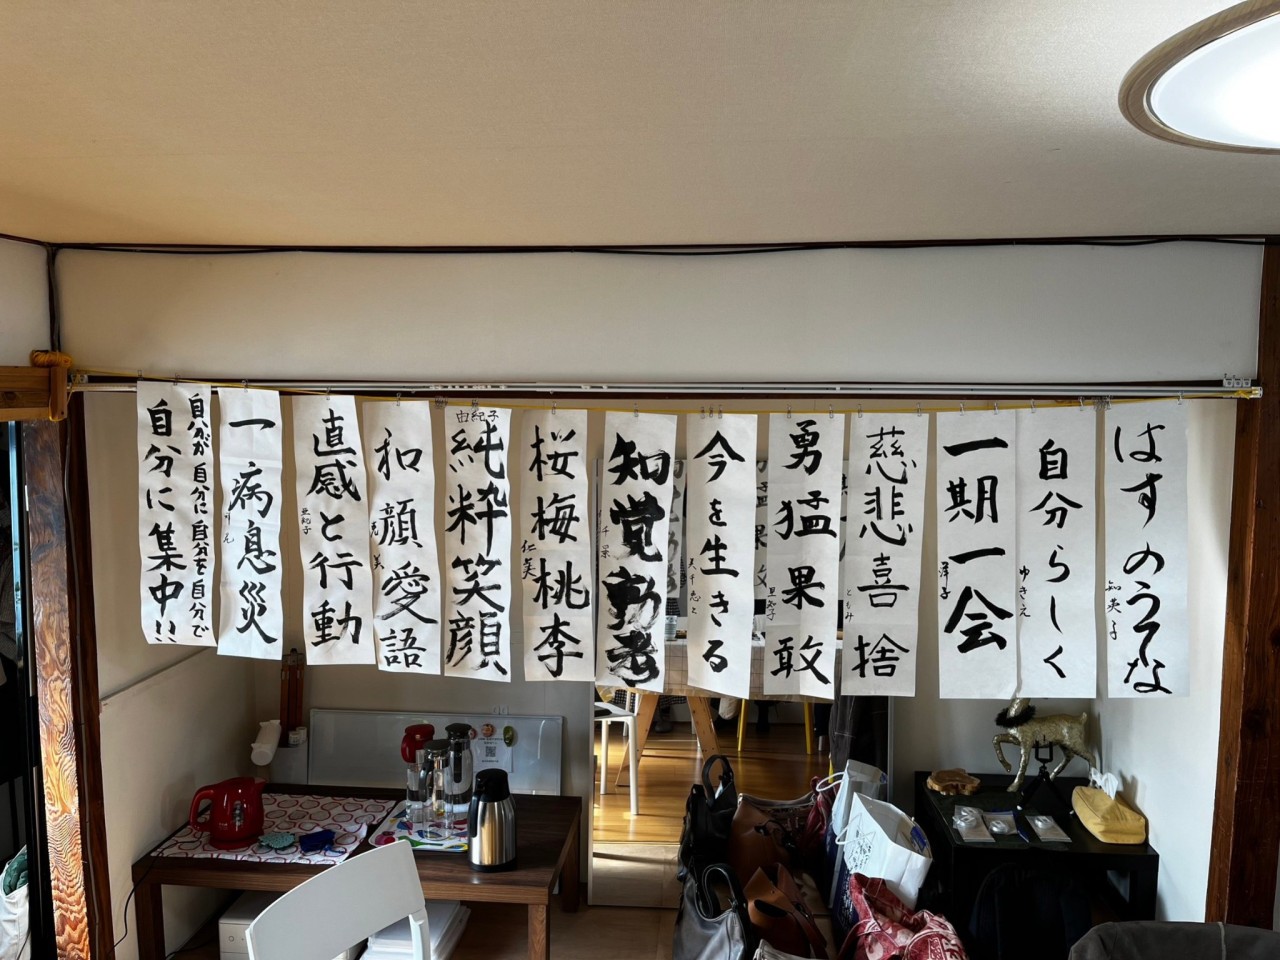 はすのうてな
知英子
自分らしく
ゆきえ
一期一会
洋子
慈悲喜捨
ともみ
勇猛果敢
亜紀子
今を生きる
知覚動考
千景
桜梅桃李
仁美
純粋笑顔
由紀子
和顔愛語
直感と行動
亜紀子
一病息災
自分が自分に自分を自分で
自分に集中!!